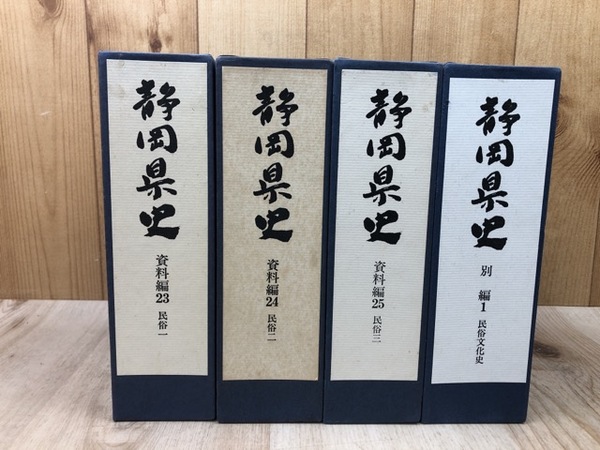 静岡県史
資料編23 民俗一
静岡県史
資料編24 民俗二
静岡県史
資料編25 民俗三
静岡県史
別編1 民俗文化史